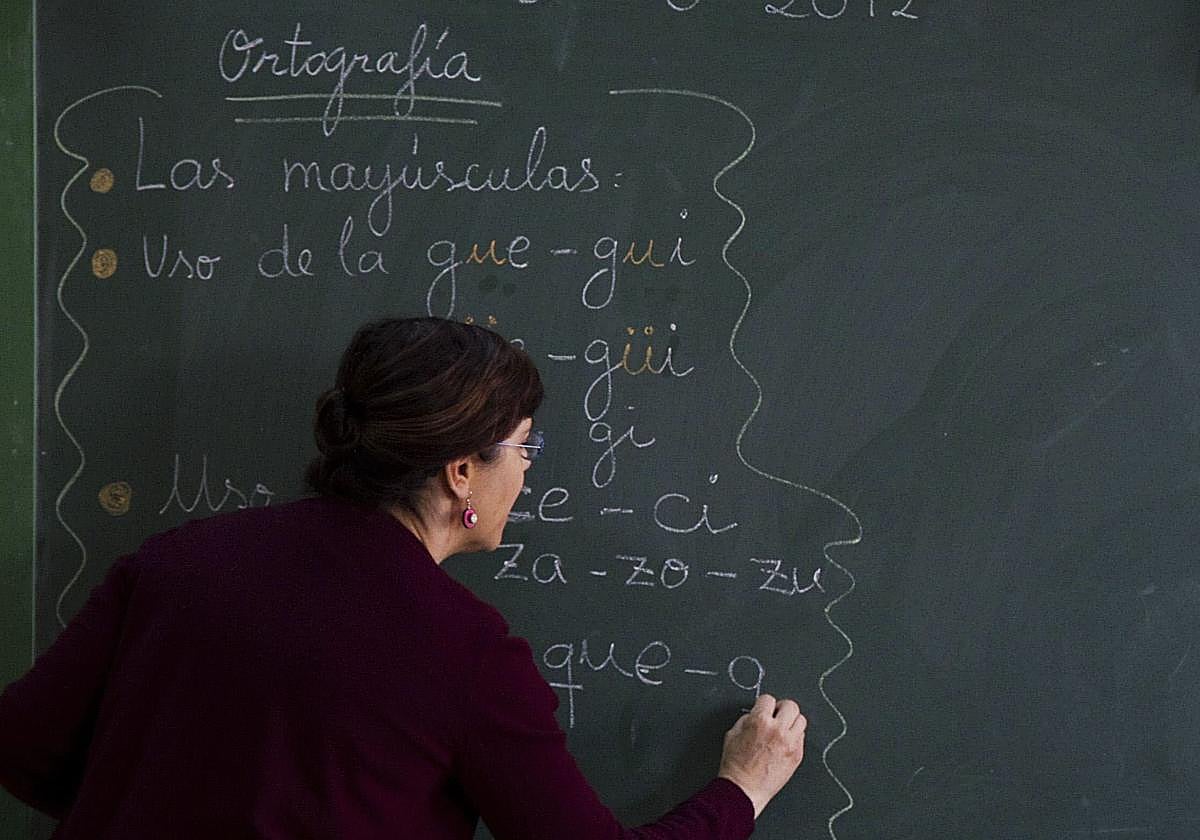 2012
Ortografía
Las mayúsculas:
Uso de la gue - gui
- güi
gi
Uso ce - ci
za - zo - zu
que - q